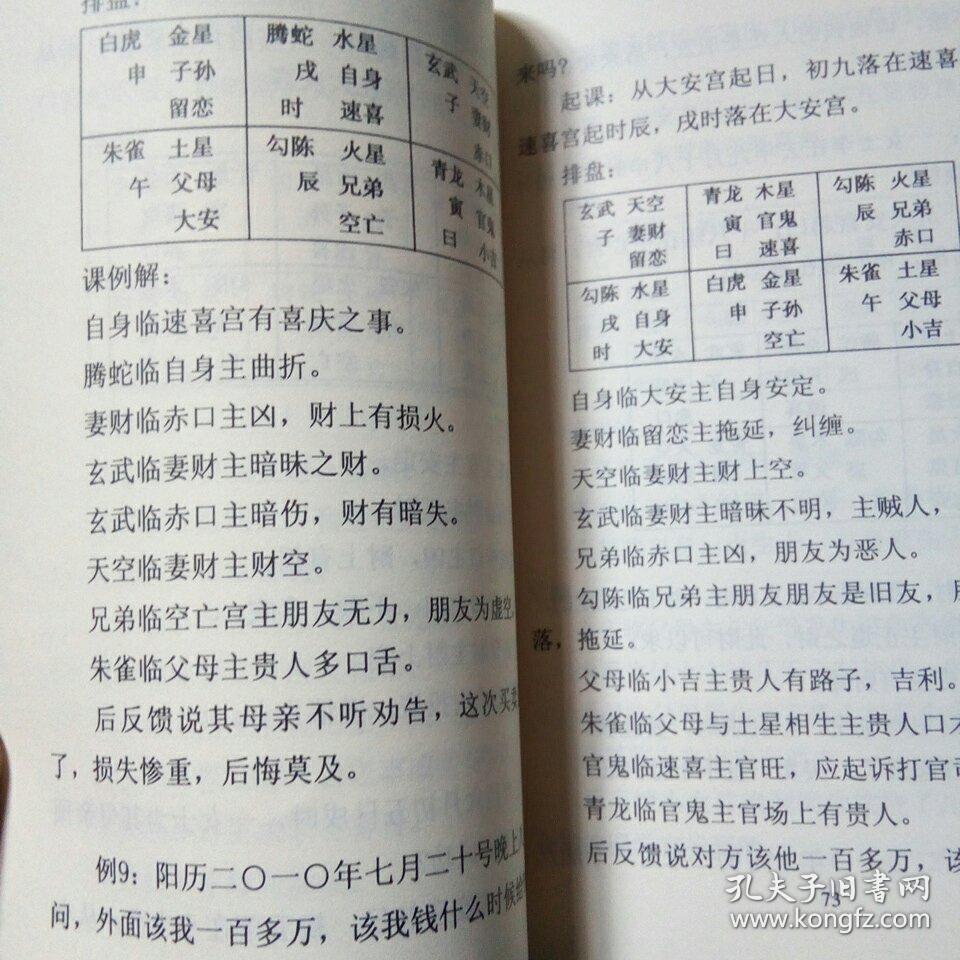 排盘：
白虎 金星 腾蛇 水星 玄武 天空
申 子孙 戌 自身 子 妻财
留恋 时 速喜 赤口
朱雀 土星 勾陈 火星 青龙 木星
午 父母 辰 兄弟 寅 官鬼
大安 空亡 日 小吉
课例解：
自身临速喜宫有喜庆之事。
腾蛇临自身主曲折。
妻财临赤口主凶，财上有损火。
玄武临妻财主暗昧之财。
玄武临赤口主暗伤，财有暗失。
天空临妻财主财空。
兄弟临空亡宫主朋友无力，朋友为虚空
朱雀临父母主贵人多口舌。
后反馈说其母亲不听劝告，这次买卖
了，损失惨重，后悔莫及。
例9：阳历二〇一〇年七月二十号晚上
问，外面该我一百多万，该我钱什么时候给
来吗？
起课：从大安宫起日，初九落在速喜
速喜宫起时辰，戌时落在大安宫。
排盘：
玄武 天空 青龙 木星 勾陈 火星
子 妻财 寅 官鬼 辰 兄弟
留恋 日 速喜 赤口
勾陈 水星 白虎 金星 朱雀 土星
戌 自身 申 子孙 午 父母
时 大安 空亡 小吉
自身临大安主自身安定。
妻财临留恋主拖延，纠缠。
天空临妻财主财上空。
玄武临妻财主暗昧不明，主贼人，
兄弟临赤口主凶，朋友为恶人。
勾陈临兄弟主朋友朋友是旧友，
落，拖延。
父母临小吉主贵人有路子，吉利。
朱雀临父母与土星相生主贵人口才
官鬼临速喜主官旺，应起诉打官司
青龙临官鬼主官场上有贵人。
后反馈说对方该他一百多万，该
73
孔夫子旧书网
www.kongfz.com